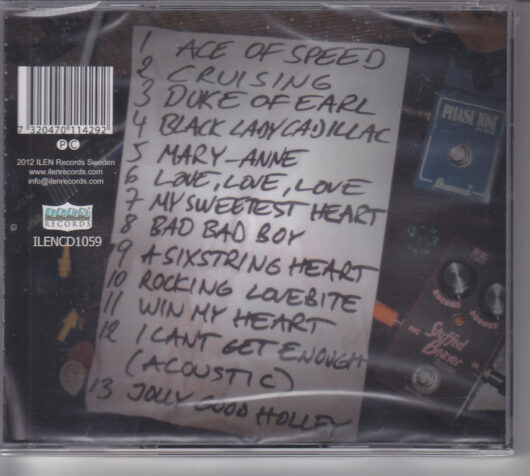 1 ACE OF SPEED
2 CRUISING
3 DUKE OF EARL
4 BLACK LADY CADILLAC
5 MARY-ANNE
6 LOVE, LOVE, LOVE
7 MY SWEETEST HEART
8 BAD BAD BOY
9 A SIXSTRING HEART
10 ROCKING LOVEBITE
11 WIN MY HEART
12 I CANT GET ENOUGH
(ACOUSTIC)
13 JOLLY GOOD HOLLEY
7 320470 114292
P C
2012 ILEN Records Sweden
www.ilenrecords.com
info@ilenrecords.com
ILEN
RECORDS
ILENCD1059
PHASE TONE